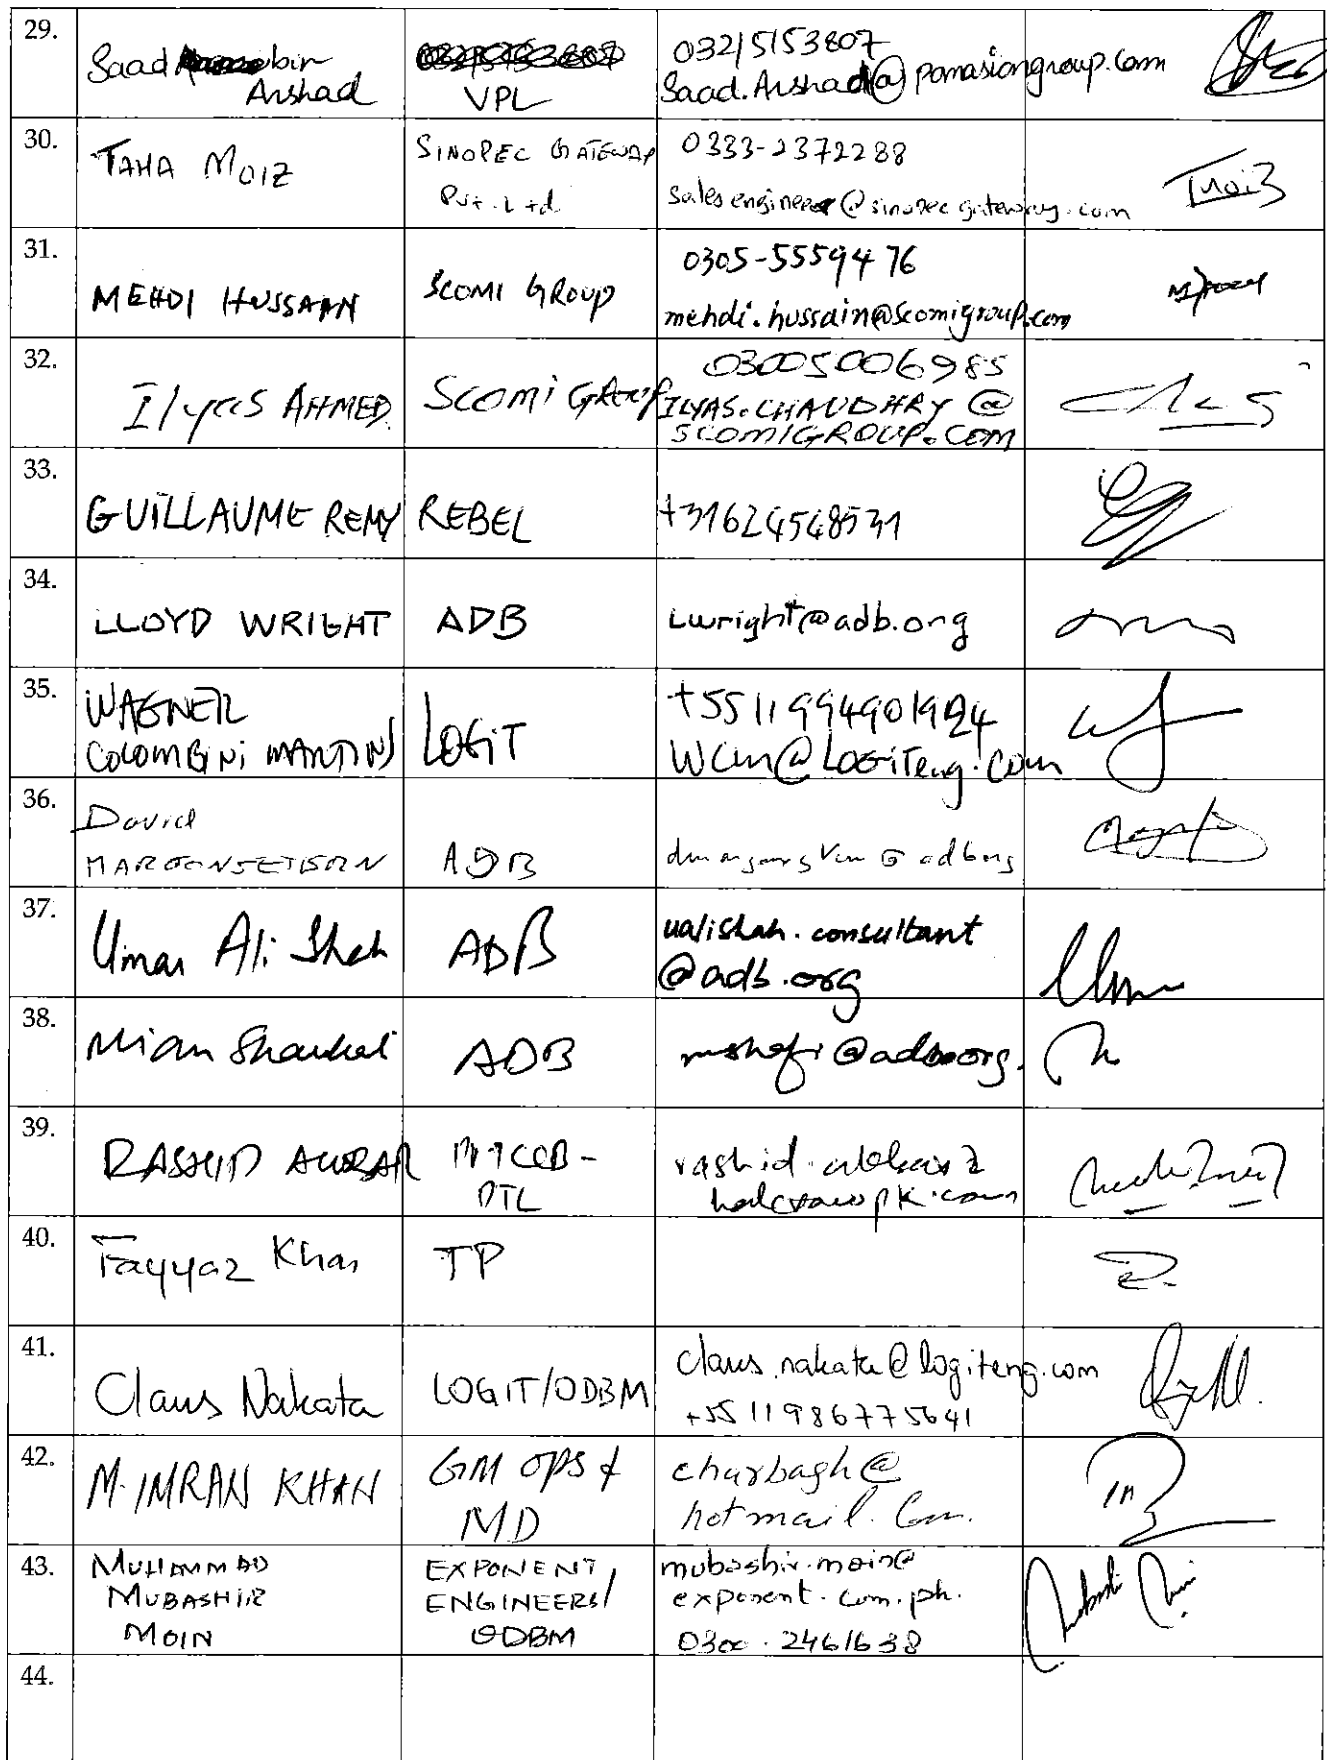 29.
Saad bin
Arshad
VPL
03215153807
Saad.Arshad@panasiangroup.com
30.
TAHA MOIZ
SINOPEC GATEWAY
Pvt. Ltd
0333-2372288
salesengineer@sinopecgateway.com
TMoiz
31.
MEHDI HUSSAIN
SCOMI GROUP
0305-5559476
mehdi.hussain@scomigroup.com
32.
Ilyas AHMED
SCOMI GROUP
03005006985
ILYAS.CHAUDHRY@
SCOMIGROUP.COM
33.
GUILLAUME REMY
REBEL
+31624548531
34.
LLOYD WRIGHT
ADB
Lwright@adb.org
35.
WAGNER
COLOMBINI MARTINS
LOGIT
WCM@LOGITeng.com
36.
David
ADB
37.
Umar Ali Shah
ADB
ualishah.consultant
@adb.org
38.
Mian Shaukat
ADB
mshafi@adb.org.
39.
RASHID AKBAR
rashid.akbar2
halcrowpk.com
40.
Fayyaz Khan
TP
41.
Claus Nakata
LOGIT/ODBM
claus.nakata@logiteng.com
+55 11 986775641
42.
M. IMRAN KHAN
GM OPS &
MD
charbagh@
hotmail.Com.
43.
MUHAMMAD
MUBASHIR
MOIN
EXPONENT
ENGINEERS/
ODBM
mubashir.moin@
exponent.com.pk.
0300.2461638
44.